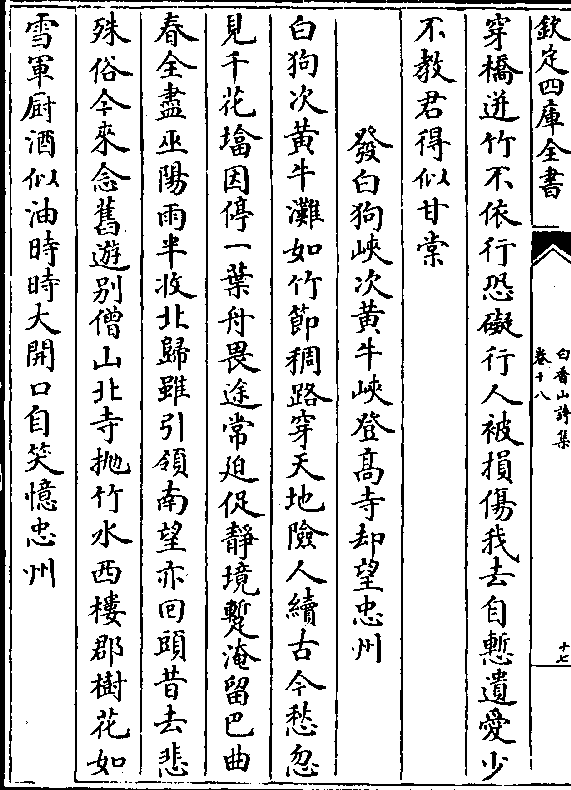 欽定四庫全書
白香山詩集
卷十八
十七
穿橋迸竹不依行恐礙行人被損傷我去自慙遺愛少
不教君得似甘棠
發白狗峽次黄牛峽登髙寺却望忠州
白狗次黄牛灘如竹節稠路穿天地險人續古今愁忽
見千花塔因停一葉舟畏途常迫促靜境蹔淹留巴曲
春全盡巫陽雨半收北歸雖引領南望亦回頭昔去悲
殊俗今來念舊遊别僧山北寺抛竹水西樓郡樹花如
雪軍厨酒似油時時大開口自笑憶忠州